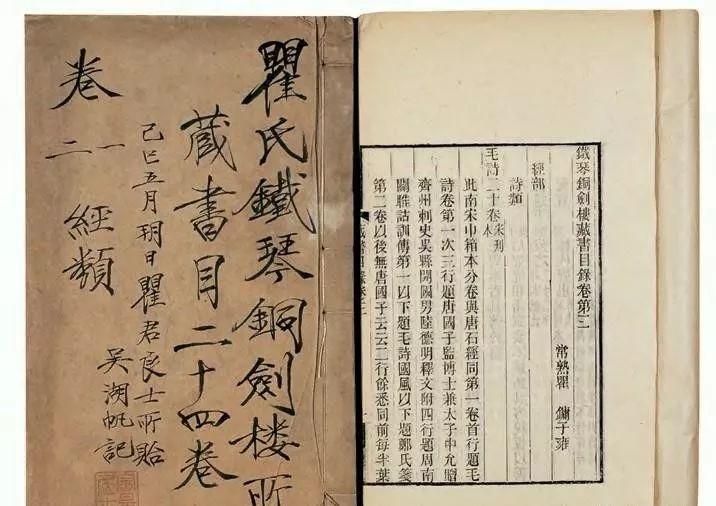 瞿氏鐵琴銅劍楼所
藏書目二十四卷
卷一二
經類
己巳五月朔日瞿君良士所貽
吴湖帆記
鐵琴銅劍樓藏書目錄卷第三
常熟瞿 鏞子雍
經部
詩類
毛詩二十卷宋刊本
此南宋巾箱本分卷與唐石經同第一卷首行題毛
詩卷第一次三行題唐國子監博士兼太子中允贈
齊州刺史吳縣開國男陸德明釋文附四行題周南
關雎詁訓傳第一以下題毛詩國風以下題鄭氏箋
第二卷以後無唐國子云云二行餘悉同前每半葉